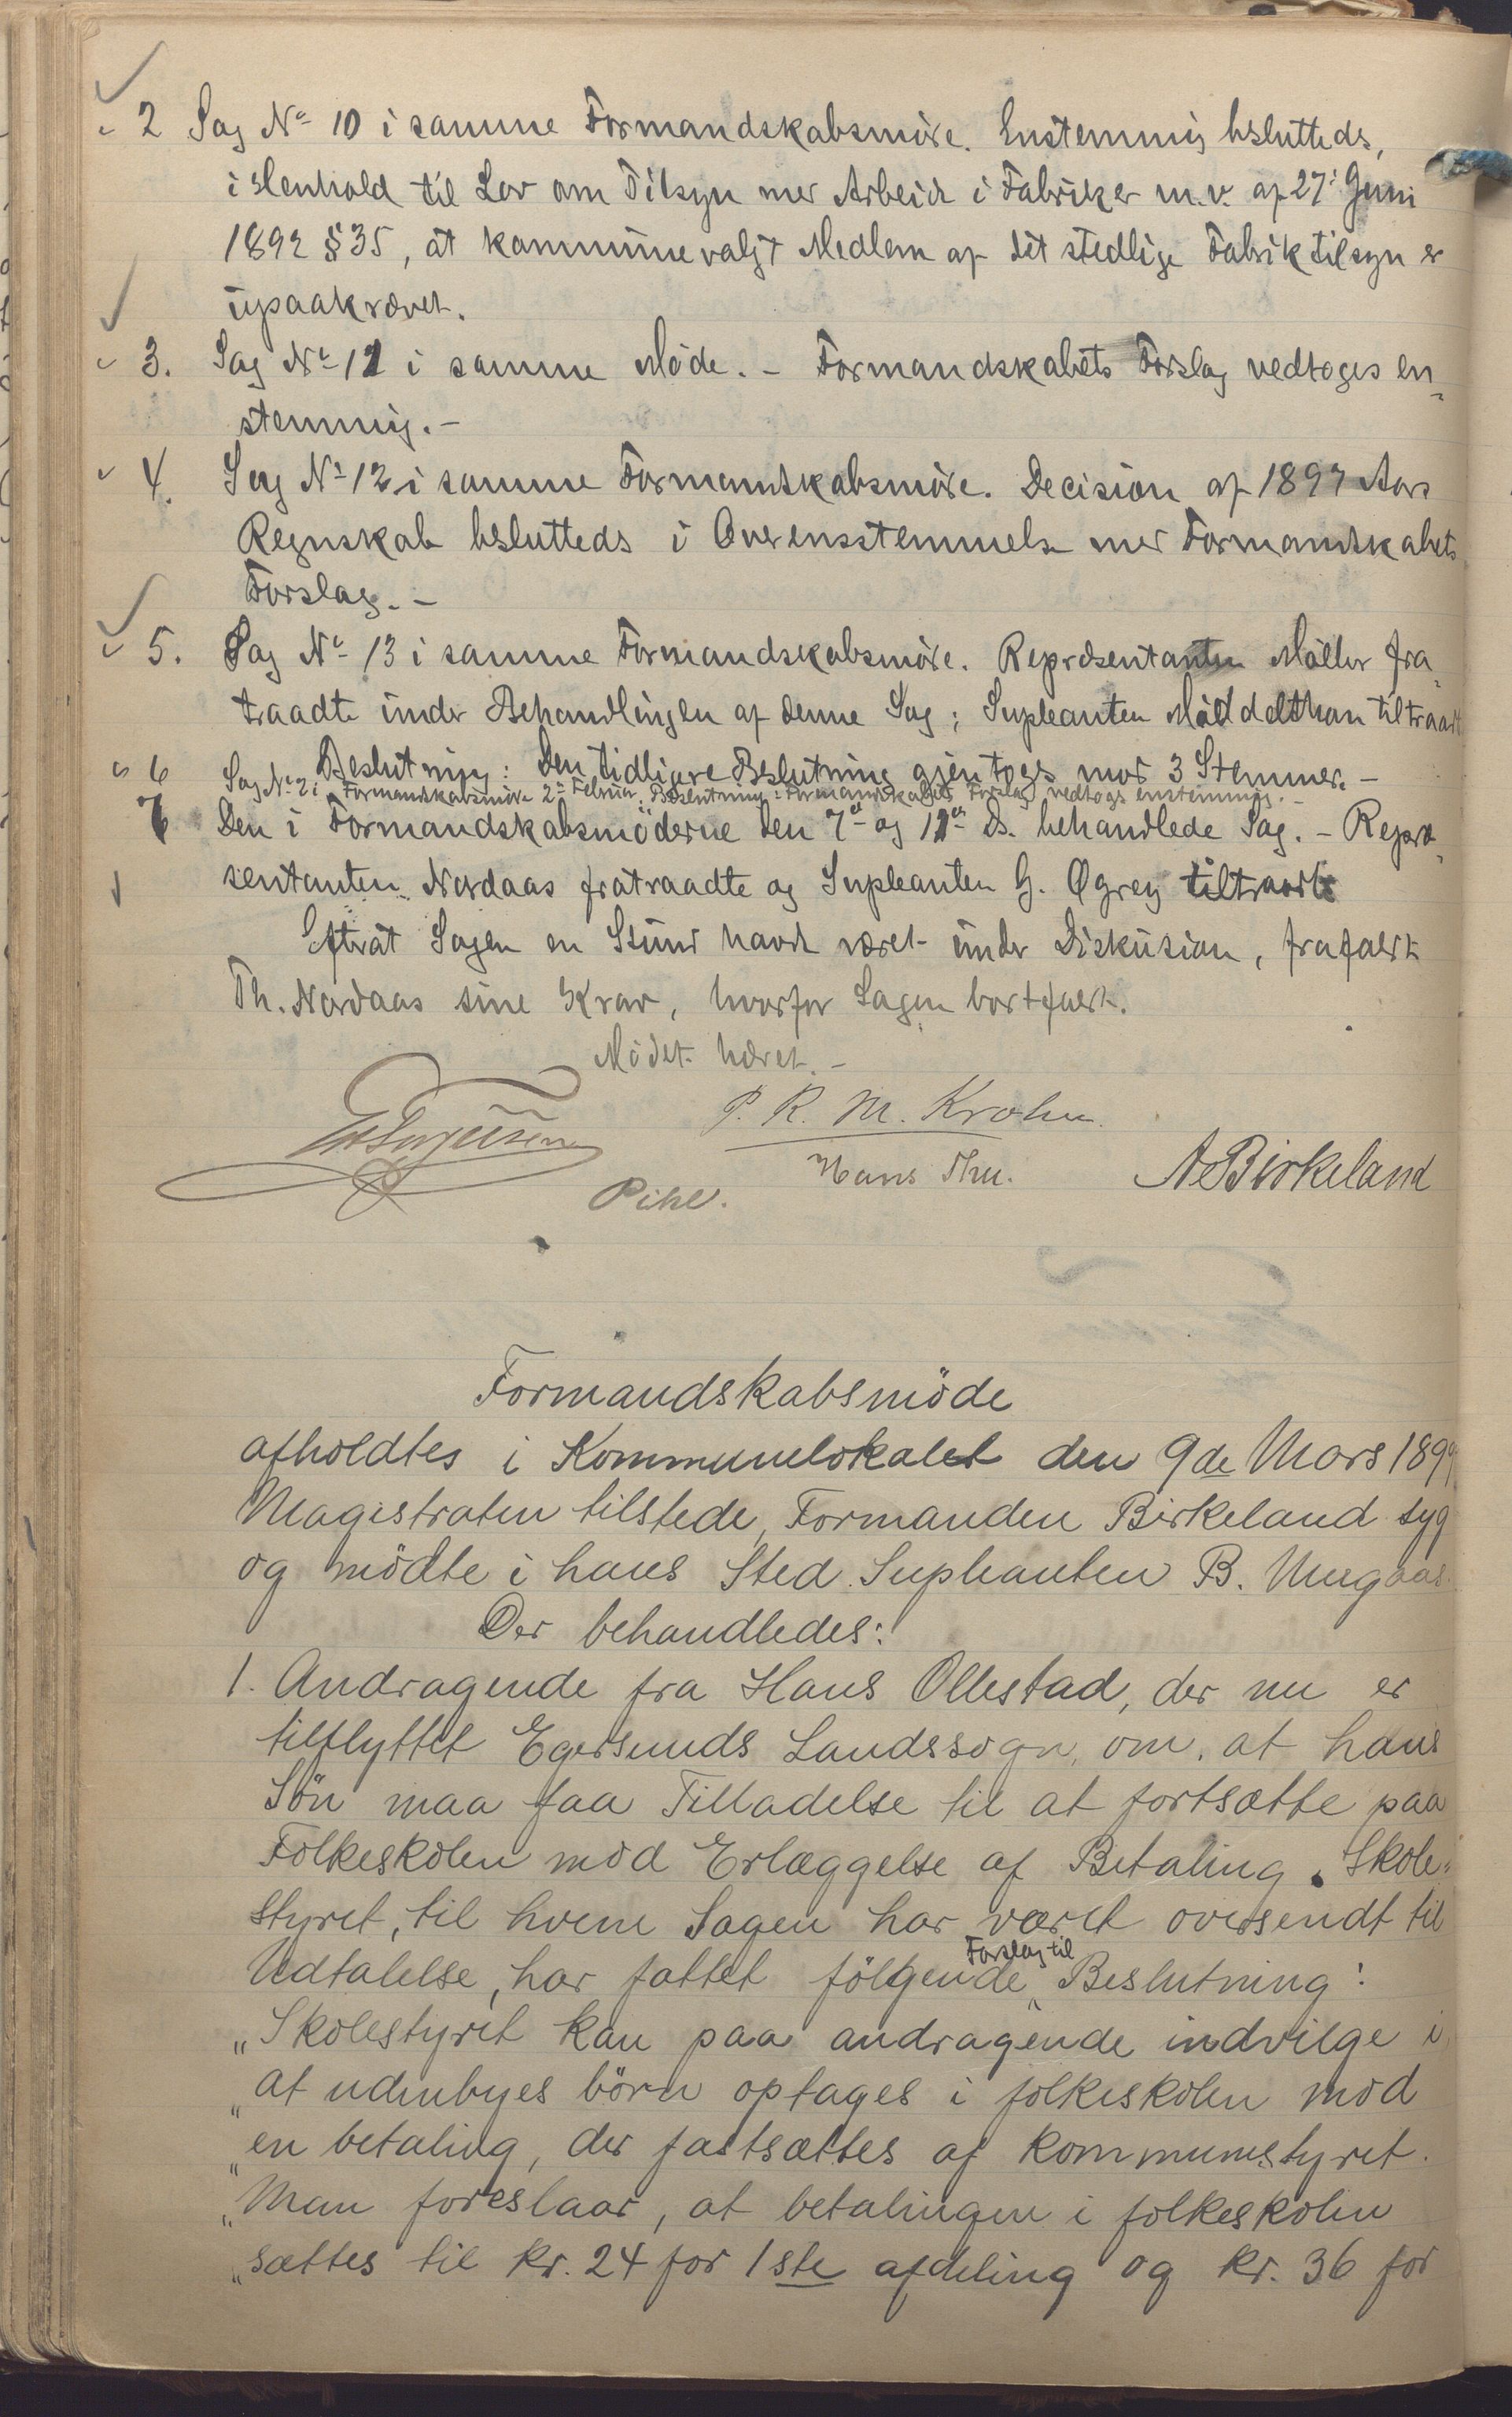 2 Sag No 10 i samme Formandskabsmöde. Enstemmig besluttedes,
i Henhold til Lov om Tilsyn med Arbeide i Fabriker m.v. af 27i Juni
1892 § 35, at kommunevalgt Medlem af det stedlige Fabriktilsyn er
upaakrævet.
3. Sag No 11 i samme Möde. – Formandskabets Forslag vedtoges en-
stemmig. –
4. Sag No 12 i samme Formandskabsmöde. Decision af 1897 Aars
Regnskab besluttedes i Overensstemmelse med Formandskabets
Forslag. –
5. Sag No 13 i samme Formandskabsmöde. Repræsentanten Möller fra-
traadte under Behandlingen af denne Sag; Supleanten Middelthon tiltraadte
Beslutning: Den tidligere Beslutning gjentoges mod 3 Stemmer. –
6 Sag No 2 i Formandskabsmöde 2den Februar. Beslutning: Formandskabets Forslag vedtoges enstemmig. –
7 Den i Formandskabsmöderne den 7de og 11te ds. behandlede Sag. – Repræ-
sentanten Nordaas fratraadte og Supleanten G. Øgrey tiltraadte
Efterat Sagen en Stund havde været under Diskusion, frafaldt
Th. Nordaas sine Krav, hvorfor Sagen bortfaldt.
Mödet hævet. –
P. R. M. Krohn.
Hans Thu.
A Birkeland
Pihl.
Formandskabsmöde
afholdtes i Kommunelokalet den 9de Mars 1899
Magistraten tilstede, Formanden Birkeland syg
og mödte i hans Sted Supleanten B. Mugaas.
Der behandledes:
1. Andragende fra Hans Ollestad, der nu er
tilflyttet Egersunds Landssogn, om, at hans
Sön maa faa Tilladelse til at fortsætte paa
Folkeskolen mod Erlæggelse af Betaling. Skole-
styret, til hvem Sagen har været oversendt til
Udtalelse, har fattet fölgende Forslag til Beslutning:
"Skolestyret kan paa andragende indvilge i,
"at udenbyes börn optages i folkeskolen mod
"en betaling, der fastsættes af kommunestyret.
"Man foreslaar, at betalingen i folkeskolen
"sættes til kr. 24 for 1ste afdeling og kr. 36 for